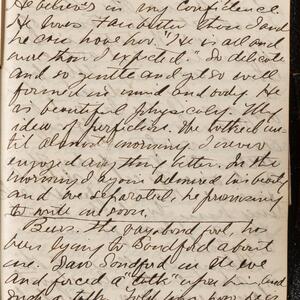 He believes in my confidence.
He loves
he can have her. "He is all and
more than I expected." So delicate
and so gentle and also well
formed in mind and body. He
is beautiful physically. My
idea of perfection. We talked un-
til almost morning. I never
enjoyed any thing better. In the
morning I again admired his beauty
and we separated, he promising
to write me soon.
the bond fool, has
been lying to Sandford about
me. Saw Sandford in the eve
and forced a "talk" upon him, and
such a talk. told him